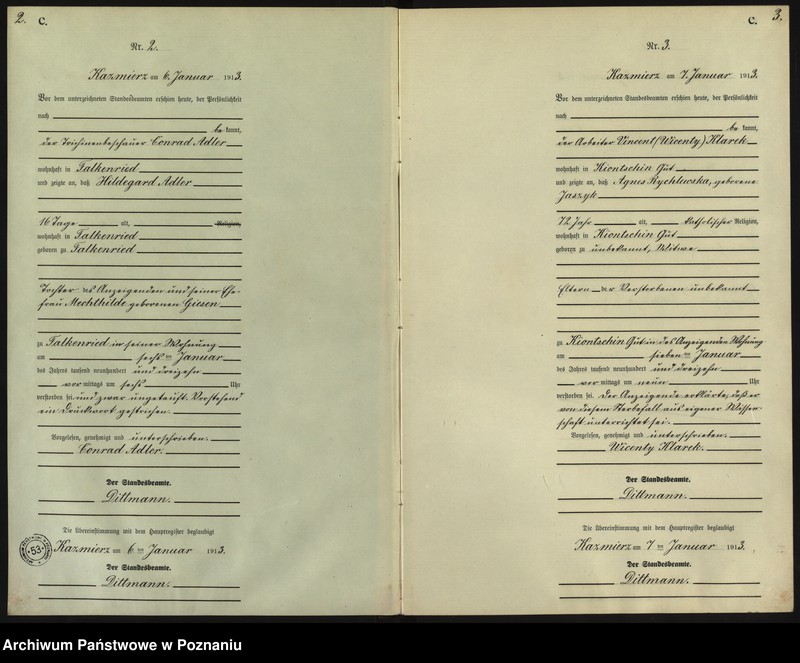 2.
C.
Nr. 2.
Kazmierz am 6. Januar 1913.
Vor dem unterzeichneten Standesbeamten erschien heute, der Persönlichkeit
nach
be kannt,
der Trichinenbeschauer Conrad Adler
wohnhaft in Falkenried
und zeigte an, daß Hildegard Adler
16 Tage alt, Religion,
wohnhaft in Falkenried
geboren zu Falkenried
Tochter des Anzeigenden und seiner Ehe-
frau Mechthilde geborenen Giesen
zu Falkenried in seiner Wohnung
am sechsten Januar
des Jahres tausend neunhundert und dreizehn
vor mittags um sechs Uhr
verstorben sei und zwar ungetauft. Vorstehend
ein Druckwort gestrichen.
Vorgelesen, genehmigt und unterschrieben.
Conrad Adler.
Der Standesbeamte.
Dittmann.
Die Übereinstimmung mit dem Hauptregister beglaubigt
Kazmierz am 6 ten Januar 1913.
Der Standesbeamte.
Dittmann.
53
3.
C.
Nr. 3.
Kazmierz am 7. Januar 1913.
Vor dem unterzeichneten Standesbeamten erschien heute, der Persönlichkeit
nach
be kannt,
der Arbeiter Vincent (Wicenty) Klarek
wohnhaft in Kiontschin Gut
und zeigte an, daß Agnes Rychlewska, geborene
Jaszyk
72 Jahr alt, katholischer Religion,
wohnhaft in Kiontschin Gut
geboren zu unbekannt, Witwe
Eltern der Verstorbenen unbekannt
zu Kiontschin Gut in des Anzeigenden Wohnung
am sieben ten Januar
des Jahres tausend neunhundert und dreizehn
vor mittags um neun Uhr
verstorben sei. Der Anzeigende erklärte, daß er
von diesem Sterbefall aus eigener Wissen-
schaft unterrichtet sei.
Vorgelesen, genehmigt und unterschrieben.
Wicenty Klarek.
Der Standesbeamte.
Dittmann.
Die Übereinstimmung mit dem Hauptregister beglaubigt
Kazmierz am 7 ten Januar 1913.
Der Standesbeamte.
Dittmann.
Archiwum Państwowe w Poznaniu